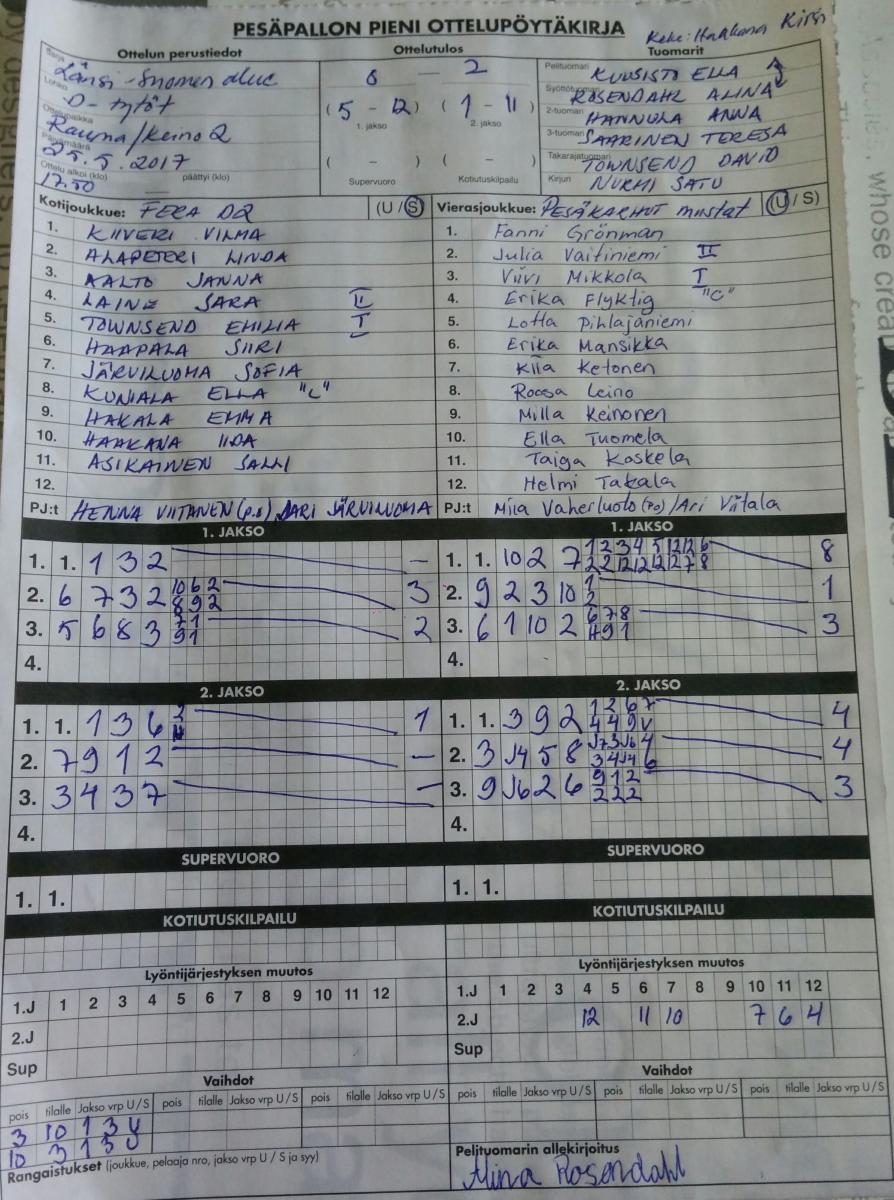 PESÄPALLON PIENI OTTELUPÖYTÄKIRJA
Haakana Kirsi
Ottelun perustiedot Ottelutulos Tuomarit
Sarja Länsi-Suomen alue
Lohko D-tytöt
Ottelupaikka Rauma/Keino 2
Päivämäärä 25.5.2017
Ottelu alkoi (klo) päättyi (klo)
17.50
0 — 2
(5 - 12) (1 - 11)
1. jakso 2. jakso
( - ) ( - )
Supervuoro Kotiutuskilpailu
Pelituomari KUUSISTO ELLA
Syöttötuomari ROSENDAHL ALINA
2-tuomari HANNULA ANNA
3-tuomari SAARINEN TERESA
Takarajatuomari TOWNSEND DAVID
Kirjuri NURMI SATU
Kotijoukkue: FERA D2 (U / S)
1. KIIVERI VILMA
2. ALAPETERI LINDA
3. AALTO JANNA
4. LAINE SARA II
5. TOWNSEND EMILIA I
6. HAAPALA SIIRI
7. JÄRVILUOMA SOFIA
8. KUNIALA ELLA "C"
9. HAKALA EMMA
10. HAAKANA IIDA
11. ASIKAINEN SALLI
12.
PJ:t HENNA VIITANEN (p.o) JARI JÄRVILUOMA
Vierasjoukkue: PESÄKARHUT mustat (U / S)
1. Fanni Grönman
2. Julia Vaitiniemi II
3. Viivi Mikkola I
4. Erika Flyktig "C"
5. Lotta Pihlajaniemi
6. Erika Mansikka
7. Kiia Ketonen
8. Roosa Leino
9. Milla Keinonen
10. Ella Tuomela
11. Taiga Koskela
12. Helmi Takala
PJ:t Miia Vaherluoto (po) / Ari Viitala
1. JAKSO
1. 1. 1 3 2 —
2. 6 7 3 2 10 6 2 3
8 9 2
3. 5 6 8 3 7 1 2
9 1
4.
1. JAKSO
1. 1. 10 2 7 1 2 3 4 5 12 12 6 8
2 2 12 12 12 12 7 8
2. 9 2 3 10 1 1
2
3. 6 1 10 2 6 7 8 3
4 9 1
4.
2. JAKSO
1. 1. 1 3 6 1
2. 7 9 1 2 —
3. 3 4 3 7 —
4.
2. JAKSO
1. 1. 3 9 2 1 2 6 7 4
4 4 9 V
2. 3 J4 5 8 J7 3 J6 4 4
3 4 J4 6
3. 9 J6 2 6 9 1 2 3
2 2 2
4.
SUPERVUORO
1. 1.
SUPERVUORO
1. 1.
KOTIUTUSKILPAILU
KOTIUTUSKILPAILU
Lyöntijärjestyksen muutos
1.J 1 2 3 4 5 6 7 8 9 10 11 12
2.J
Sup
Lyöntijärjestyksen muutos
1.J 1 2 3 4 5 6 7 8 9 10 11 12
2.J 12 11 10 7 6 4
Sup
Vaihdot
pois tilalle Jakso vrp U / S pois tilalle Jakso vrp U / S pois tilalle Jakso vrp U / S
3 10 1 3 U
10 3 1 3 U
Vaihdot
pois tilalle Jakso vrp U / S pois tilalle Jakso vrp U / S pois tilalle Jakso vrp U / S
Rangaistukset (joukkue, pelaaja nro, jakso vrp U / S ja syy)
Pelituomarin allekirjoitus
Alina Rosendahl